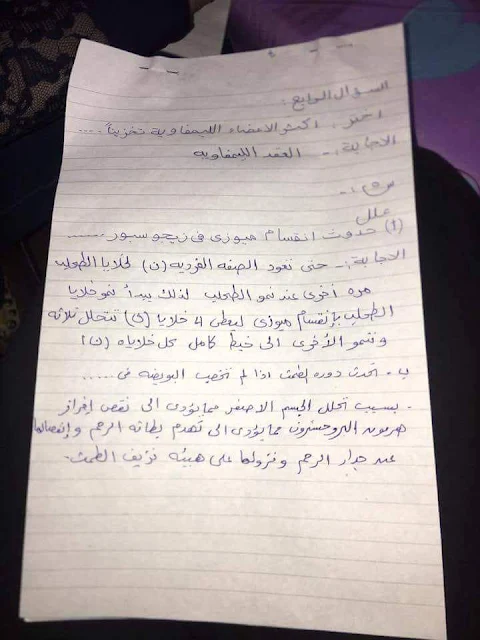 السؤال الرابع :
اختر : اكثر الاعضاء الليمفاوية تخزيناً .....
الاجابة :- العقد الليمفاويه
س ٥ :-
علل
(١) حدوث انقسام ميوزى فى زيجوسبور .......
الاجابة :- حتى تعود الصفه الفرديه (ن) لخلايا الطحلب
مره أخرى عند نمو الطحلب لذلك يبدأ نمو خلايا
الطحلب بإنقسام ميوزى ليعطى 4 خلايا (ن) تتحلل ثلاثه
وتنمو الأخرى الى خيط كامل كل خلاياه (ن)
ب - تحدث دوره الطمث اذا لم تخصب البويضه فى ......
- بسبب تحلل الجسم الاصفر مما يؤدى الى نقص إفراز
هرمون البروجسترون مما يؤدى الى تهدم بطانه الرحم وإنفصالها
عند جدار الرحم ونزولها على هيئه نزيف الطمث .